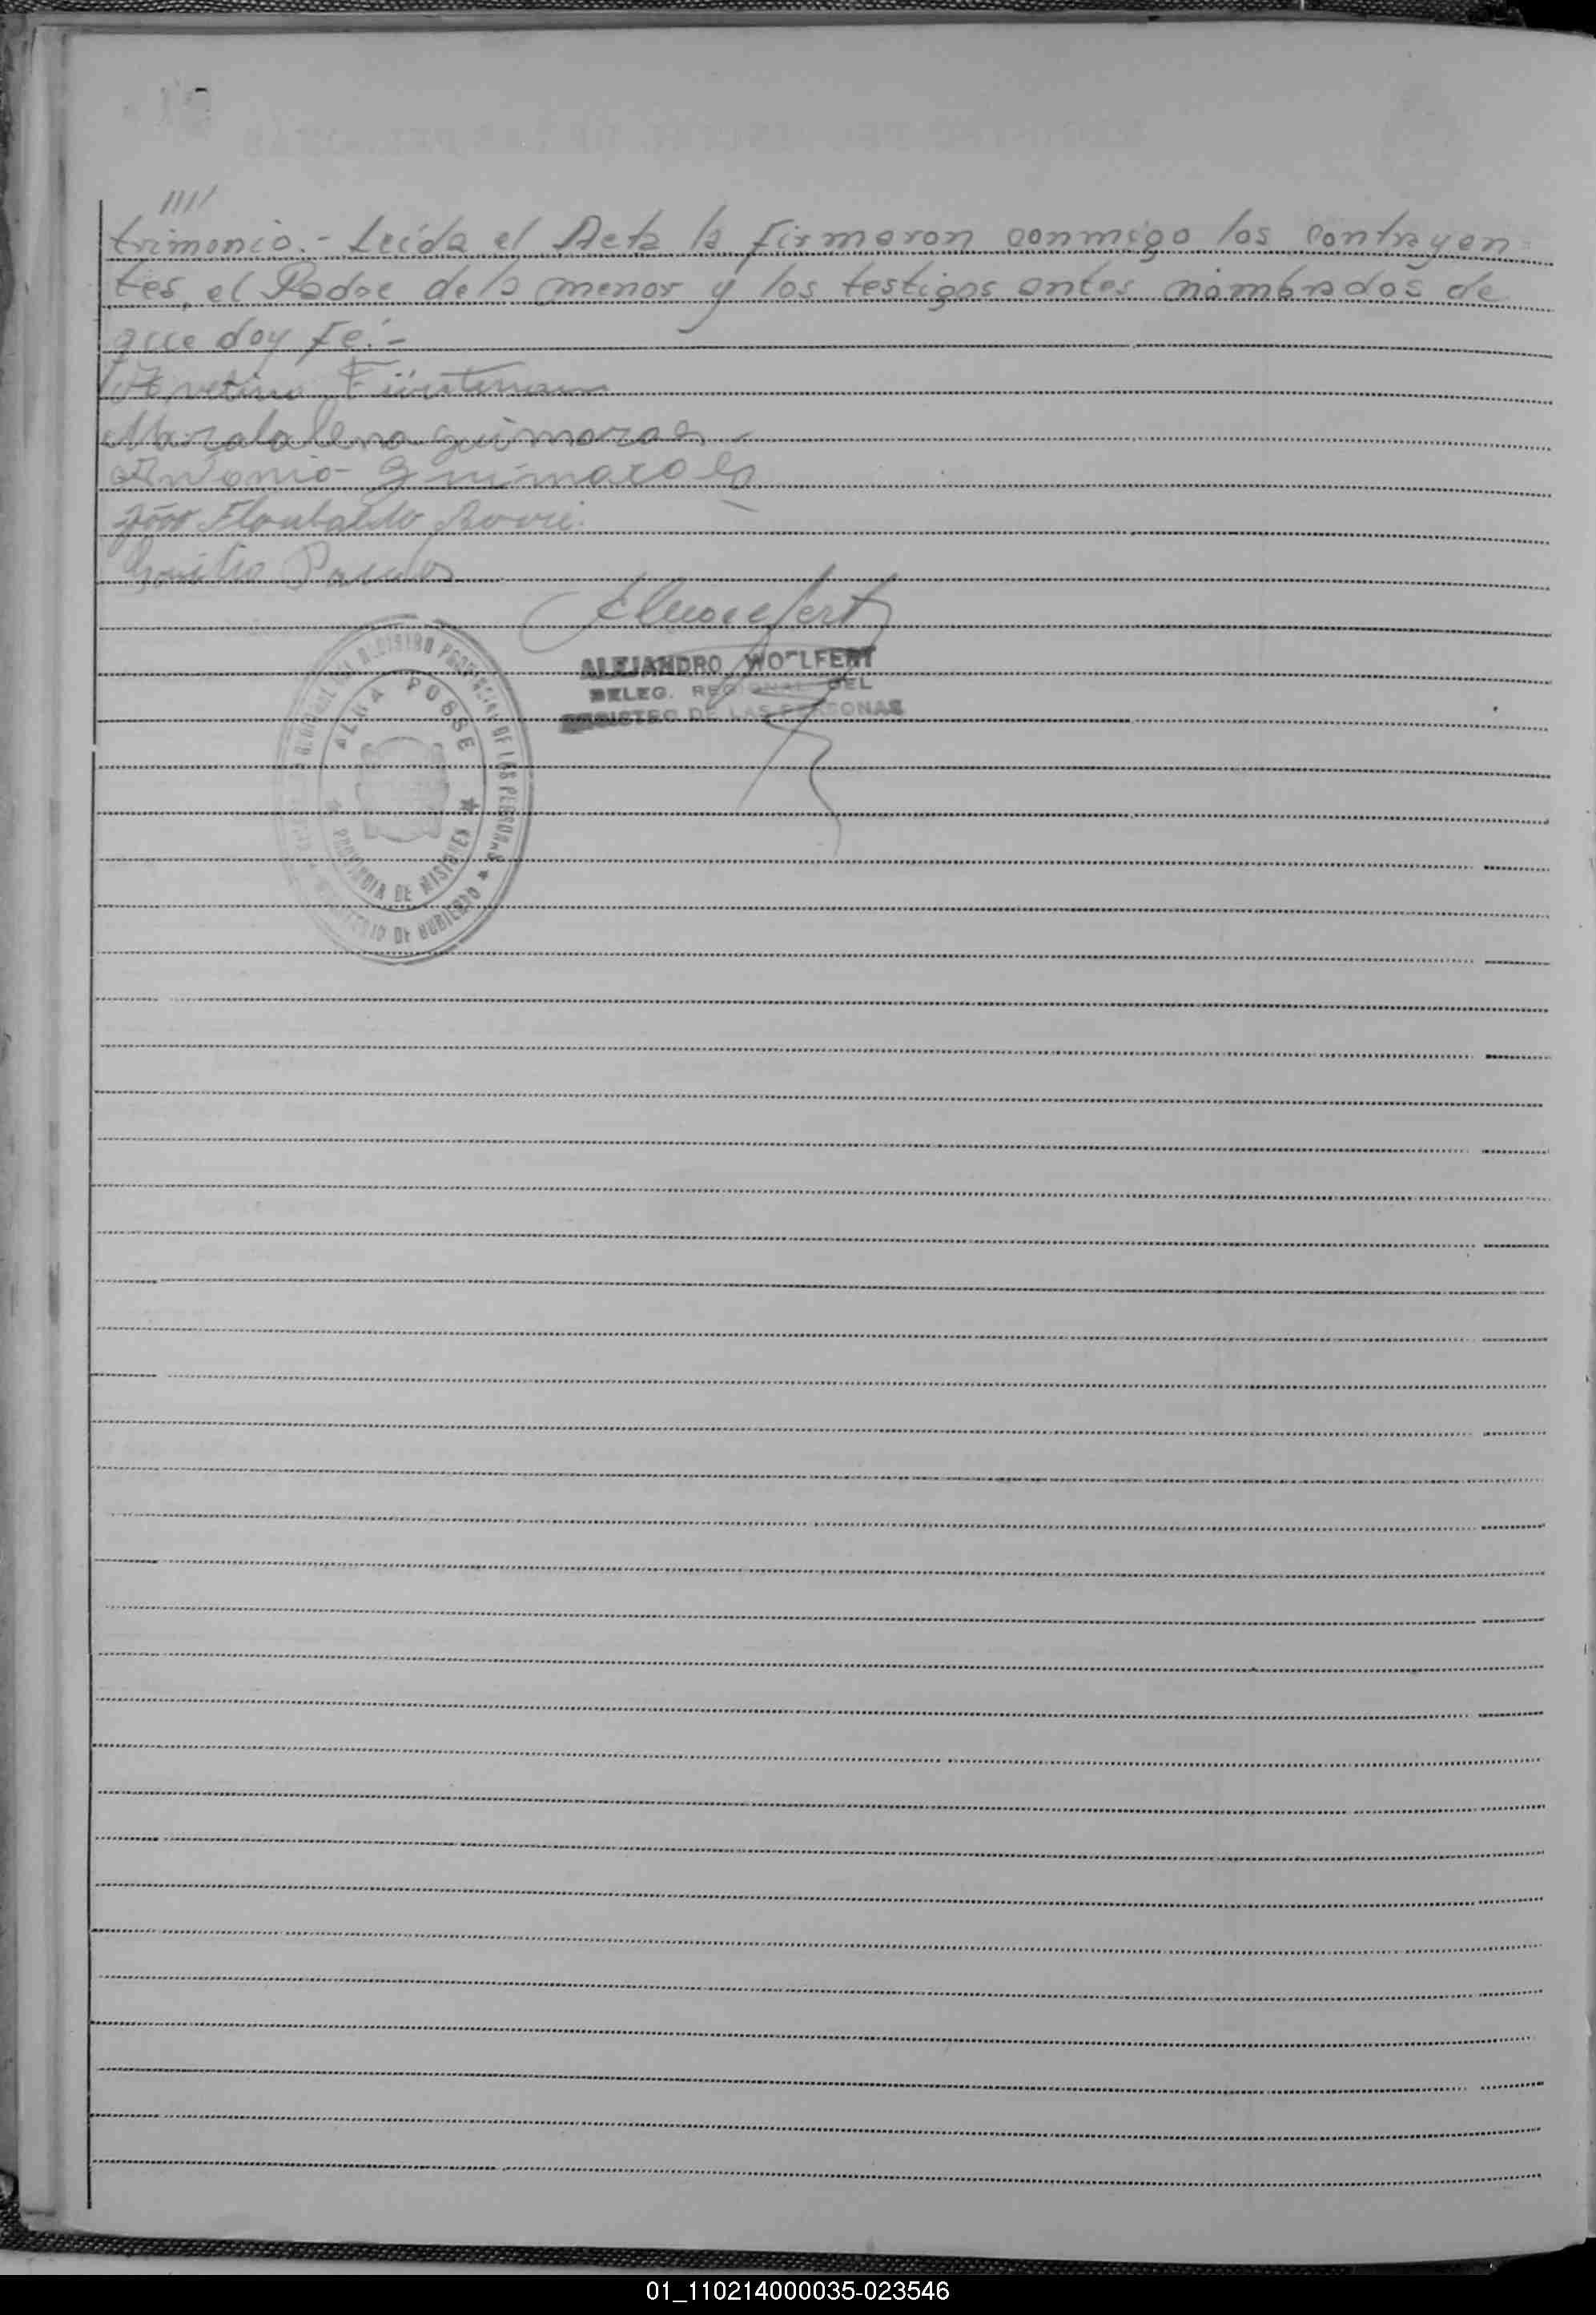 ////
trimonio.- Leída el Acta la firmaron conmigo los contrayen=
tes, el Padre de la menor y los testigos antes nombrados de
que doy Fé.-
Fürstenau
Mardalena guimaraes -
Antonio Guimaraes
João
ALEJANDRO WOLFERT
DELEG. REGIONAL DEL
REGISTRO DE LAS PERSONAS
REGISTRO PROVINCIAL DE LAS PERSONAS
ALBA POSSE
PROVINCIA DE MISIONES
MINISTERIO DE GOBIERNO
01_110214000035-023546